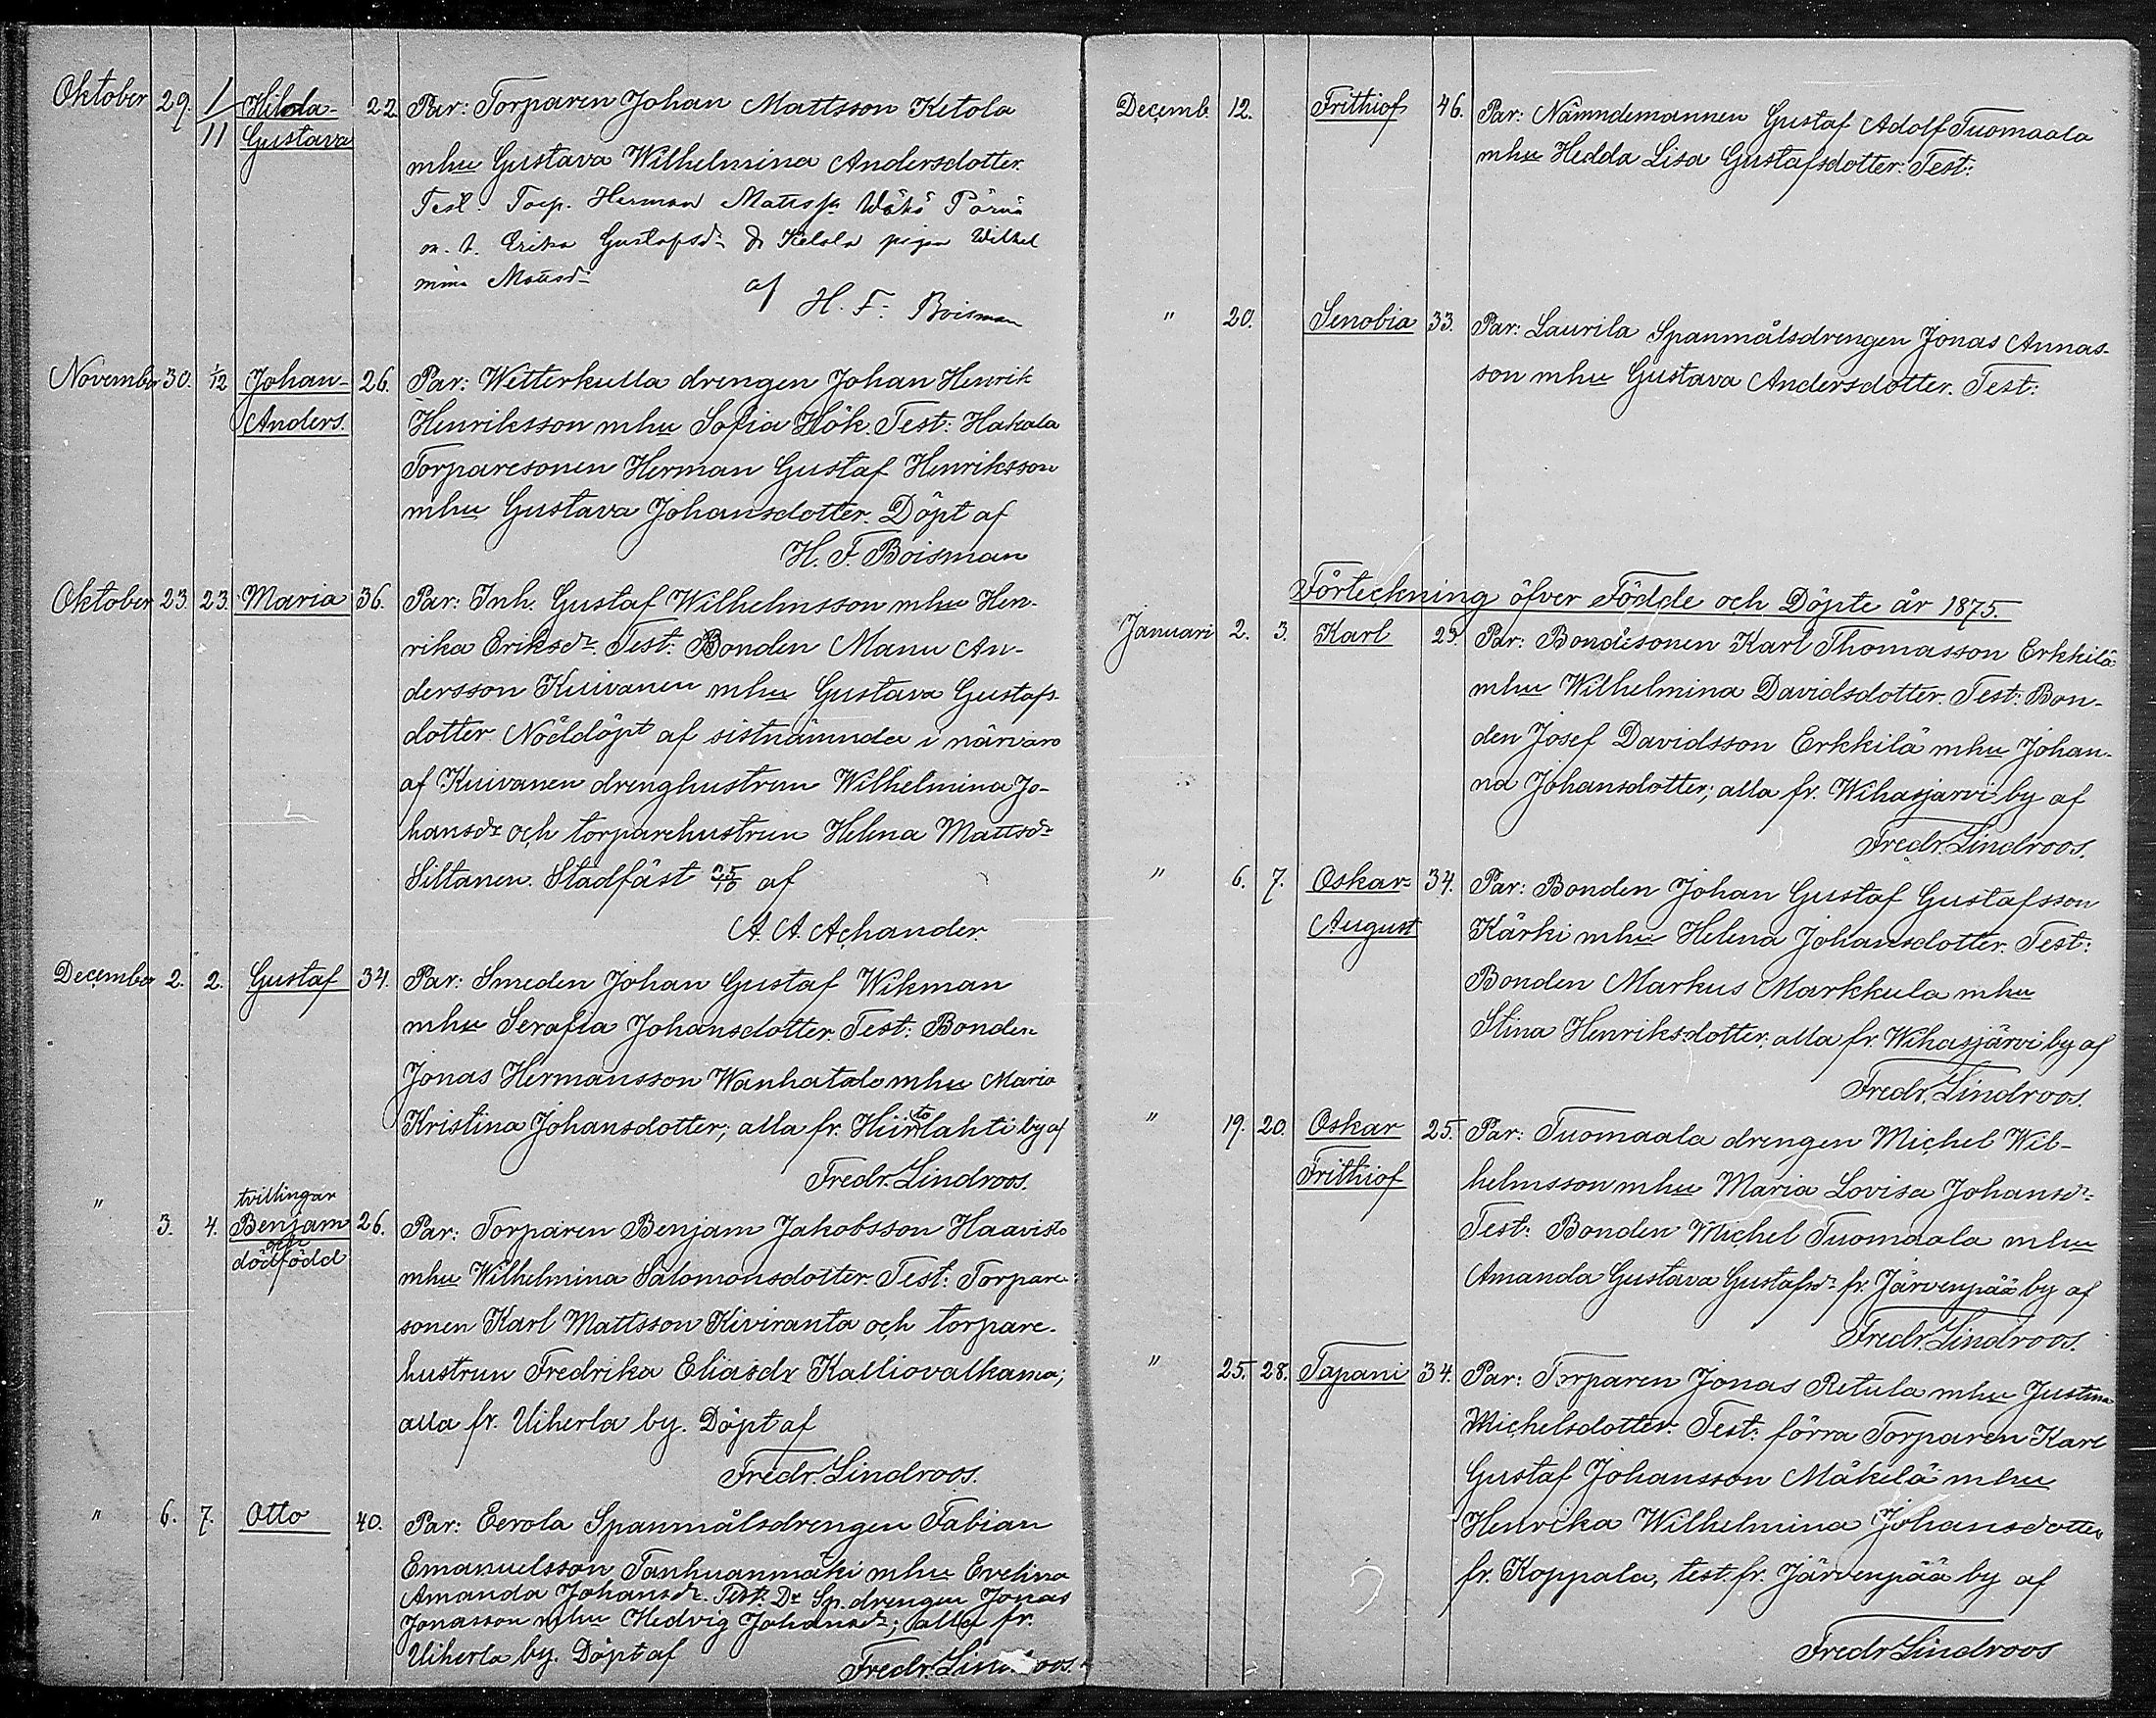 Oktober 29. 1/11 Hilda- 22. Par: Torparen Johan Mattsson Ketola
Gustava mhu Gustava Wilhelmina Andersdotter.
Test. Torp. Herman Matts
m. h. Erika Gustafsdr Ketola pigan Wilhel
mina Mattsdr af
H. F. Boisman
November 30. 1/12 Johan- 26. Par: Wetterkulla drengen Johan Henrik
Anders. Henriksson mhu Sofia Hök. Test: Hakala
Torparesonen Herman Gustaf Henriksson
mhu Gustava Johansdotter. Döpt af
H. F. Boisman
Oktober 23. 23. Maria 36. Par: Inh. Gustaf Wilhelmsson mhu Hen-
rika Eriksdr. Test: Bonden Manu An-
dersson Kuivanen mhu Gustava Gustafs-
dotter. Nöddöpt af sistnämnda i närvaro
af Kuivanen drenghustrun Wilhelmina Jo-
hansdr och torparehustrun Helena Mattsdr
Siltanen. Stadfäst 25/10 af
A. A. Achander.
December 2. 2. Gustaf 34. Par: Smeden Johan Gustaf Wikman
mhu Serafia Johansdotter. Test: Bonden
Jonas Hermansson Wanhatalo mhu Maria
Kristina Johansdotter; alla fr. Hiirtolahti by af
Fredr. Lindroos.
" tvillingar
3. 4. Benjam 26. Par: Torparen Benjam Jakobsson Haavisto
och
dödfödd mhu Wilhelmina Salomonsdotter. Test: Torpare-
sonen Karl Mattsson Kiviranta och torpare-
hustrun Fredrika Eliasdr Kalliovalkama;
alla fr. Uiherla by. Döpt af
Fredr. Lindroos.
" 6. 7. Otto 40. Par: Eerola Spanmålsdrengen Fabian
Emanuelsson Tanhuanmäki mhu Evelina
Amanda Johansdr. Test: Do Sp. drengen Jonas
Jonasson mhu Hedvig Johansdr; alla fr.
Uiherla by. Döpt af Fredr. Lindroos.
Decemb. 12. Frithiof 46. Par: Nämndemannen Gustaf Adolf Tuomaala
mhu Hedda Lisa Gustafsdotter. Test:
" 20. Senobia 33. Par: Laurila Spanmålsdrengen Jonas Annas-
son mhu Gustava Andersdotter. Test:
Förteckning öfver Födde och Döpte år 1875.
Januari 2. 3. Karl 29. Par: Bondesonen Karl Thomasson Erkkilä
mhu Wilhelmina Davidsdotter. Test: Bon-
den Josef Davidsson Erkkilä mhu Johan-
na Johansdotter; alla fr. Wihasjärvi by af
Fredr. Lindroos.
" 6. 7. Oskar- 34. Par: Bonden Johan Gustaf Gustafsson
August Kärki mhu Helena Johansdotter. Test:
Bonden Markus Markkula mhu
Stina Henriksdotter; alla fr. Wihasjärvi by af
Fredr. Lindroos.
" 19. 20. Oskar 25. Par: Tuomaala drengen Michel Wil-
Frithiof helmsson mhu Maria Lovisa Johansdr.
Test: Bonden Michel Tuomaala mhu
Amanda Gustava Gustafsdr fr. Järvenpää by af
Fredr. Lindroos.
" 25. 28. Tapani 34. Par: Torparen Jonas Retula mhu Justina
Michelsdotter. Test: förra Torparen Karl
Gustaf Johansson Mäkelä mhu
Henrika Wilhelmina Johansdotter
fr. Koppala, test. fr. Järvenpää by af
Fredr Lindroos